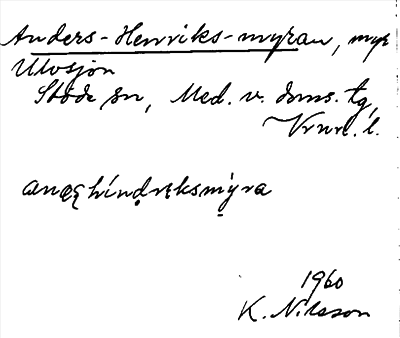 Anders-Henriks-myran, myr
Ulvsjön
Stöde sn, Med. v. doms. tg,
Vrnrl. l.
anęʂhindręksmyra
1960
K. Nilsson